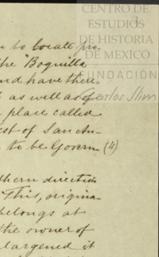 CENTRO DE
ESTUDIOS
DE HISTORIA
DE MEXICO
FUNDACIÓN
Carlos Slim
n to locate
the Boquilla
and have their
as well as of
place called
to be Govern (4)
thern direction
This, origina-
belongs at
the owner of
largened it